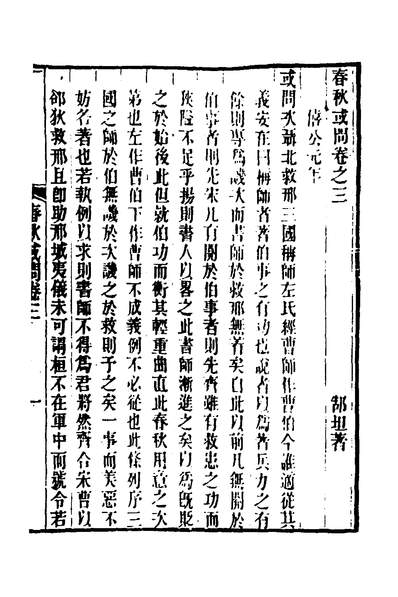 春秋或問卷之三
郜坦著
僖公元年
或問次聶北救邢三國稱師左氏經曹師作曹伯今誰適從其
義安在曰稱師者著伯事之有功也說者以爲著兵力之有
餘則專爲譏次而書師於救邢無著矣自此以前凡無關於
伯事者則先宋凡有關於伯事者則先齊雖有救患之功而
狹隘不足乎揚則書人以畧之此書師漸進之矣以爲旣貶
之於始後此但就伯功而衡其輕重曲直此春秋用意之次
第也左作曹伯下作曹師不成義例不必從也此條列序三
國之師於伯無譏於次譏之於救則予之矣一事而美惡不
妨各著也若執例以求則書師不得爲君將然齊合宋曹以
郤狄救邢且卽助邢城夷儀未可謂桓不在軍中而號令若
春秋或問卷三
一